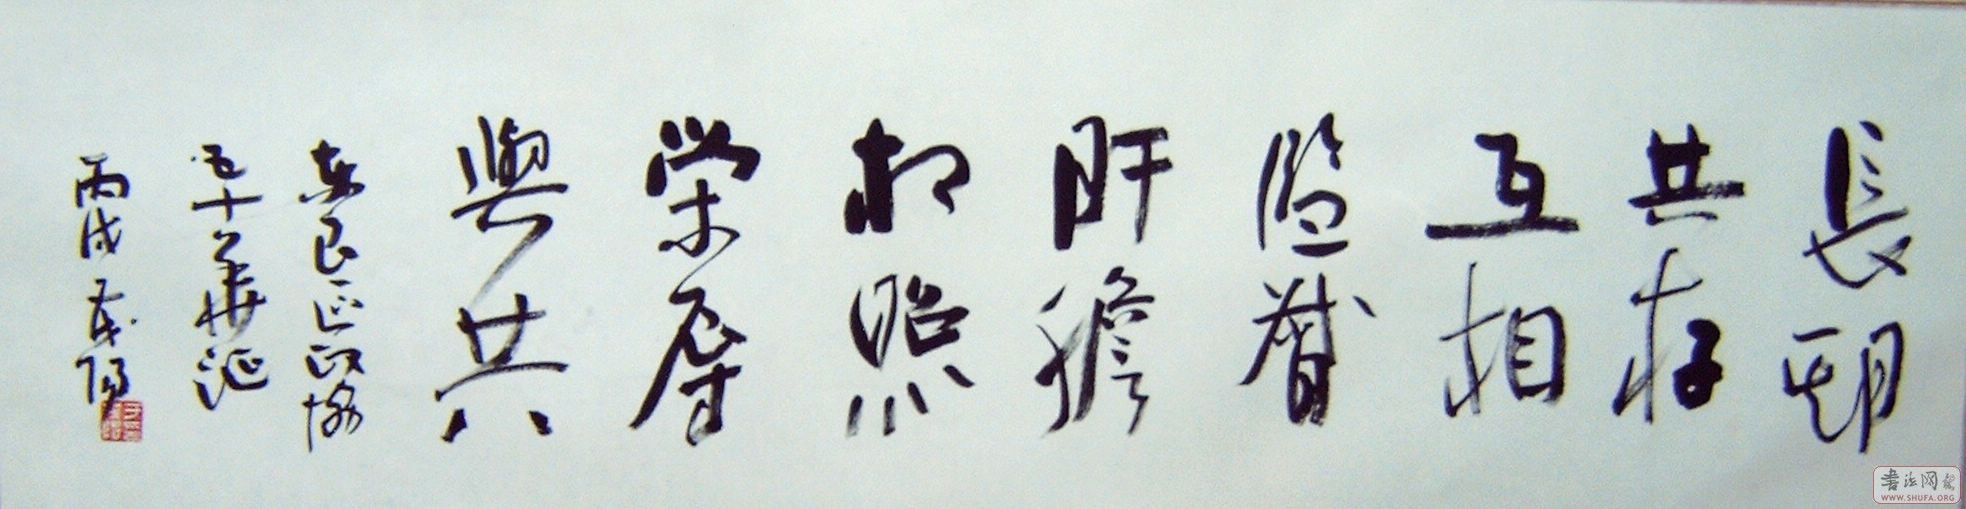 長期
共存
互相
監督
肝膽
相照
榮辱
與共
東良区政协
五十華诞
丙戌
书法网
WWW.SHUFA.ORG